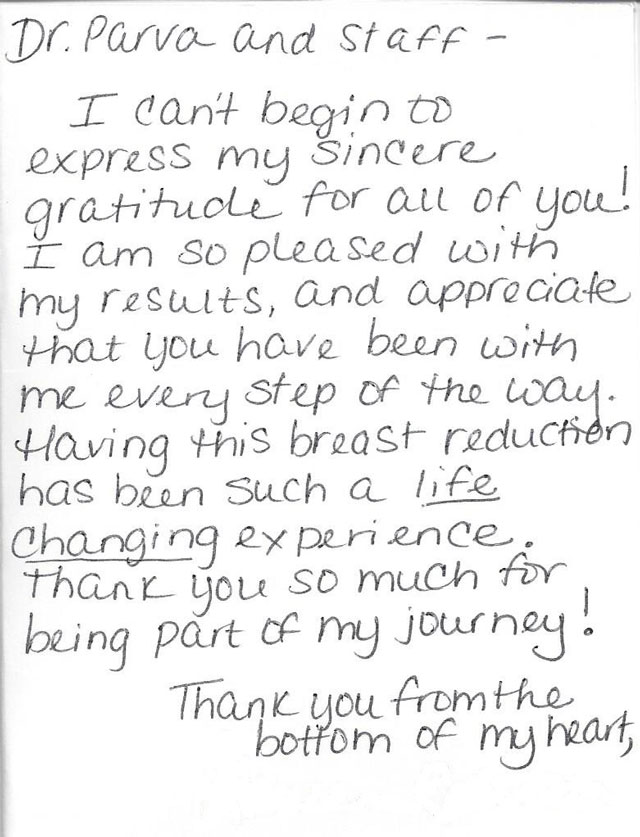 Dr. Parva and staff -
I can't begin to
express my sincere
gratitude for all of you!
I am so pleased with
my results, and appreciate
that you have been with
me every step of the way.
Having this breast reduction
has been such a life
changing experience.
Thank you so much for
being part of my journey!
Thank you from the
bottom of my heart,